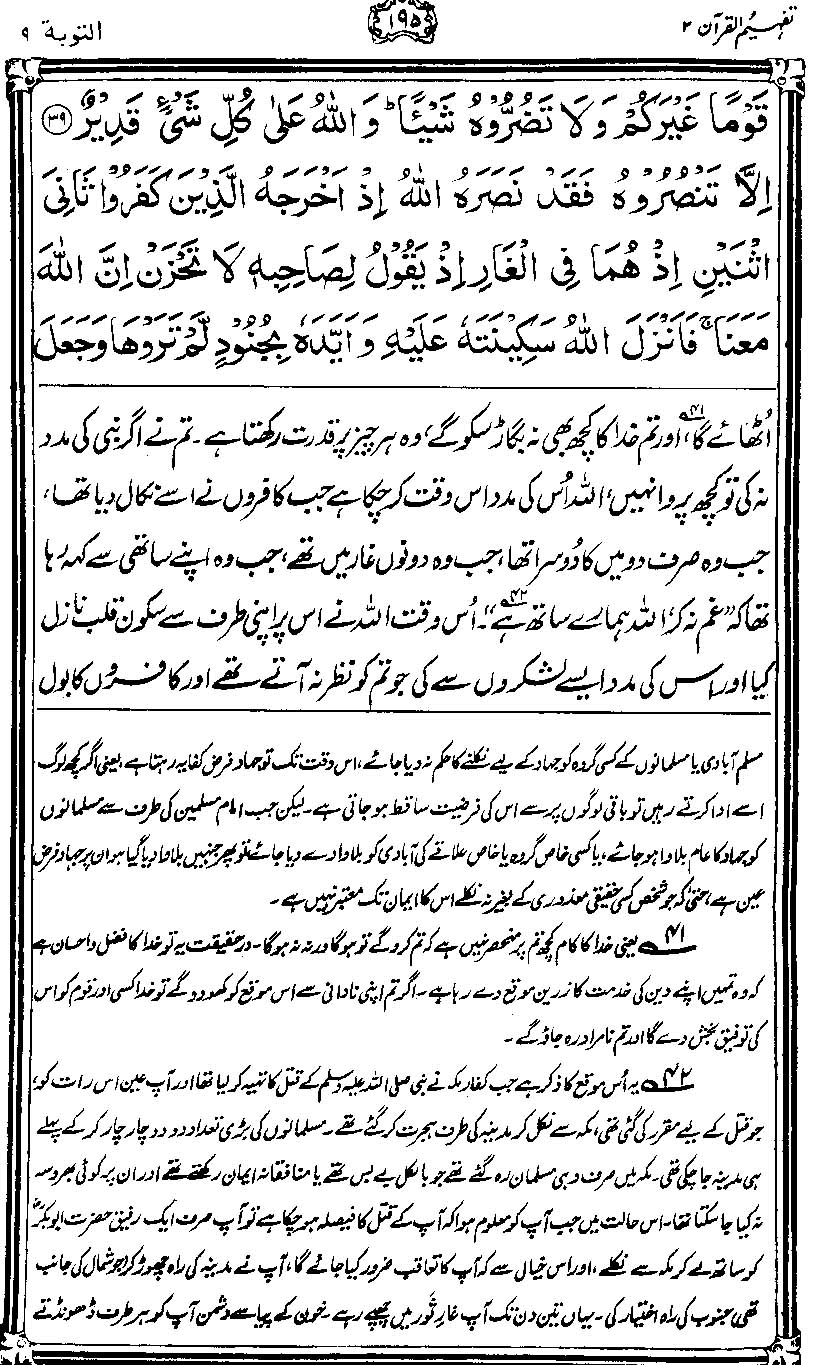 تفہیم القرآن ۲
۱۹۵
التوبة ۹
قَوْمًا غَيْرَكُمْ وَلَا تَضُرُّوْهُ شَيْـًٔا ؕ وَاللّٰهُ عَلٰى كُلِّ شَىْءٍ قَدِيْرٌ ﴿۳۹﴾
اِلَّا تَنْصُرُوْهُ فَقَدْ نَصَرَهُ اللّٰهُ اِذْ اَخْرَجَهُ الَّذِيْنَ كَفَرُوْا ثَانِىَ
اثْنَيْنِ اِذْ هُمَا فِى الْغَارِ اِذْ يَقُوْلُ لِصَاحِبِهٖ لَا تَحْزَنْ اِنَّ اللّٰهَ
مَعَنَا ۚ فَاَنْزَلَ اللّٰهُ سَكِيْنَتَهٗ عَلَيْهِ وَاَيَّدَهٗ بِجُنُوْدٍ لَّمْ تَرَوْهَا وَجَعَلَ
اُٹھائے گا،۴۱ اور تم خدا کا کچھ بھی نہ بگاڑ سکو گے، وہ ہر چیز پر قدرت رکھتا ہے۔ تم نے اگر نبی کی مدد
نہ کی تو کچھ پروا نہیں، اللہ اُس کی مدد اس وقت کر چکا ہے جب کافروں نے اسے نکال دیا تھا،
جب وہ صرف دو میں کا دُوسرا تھا، جب وہ دونوں غار میں تھے، جب وہ اپنے ساتھی سے کہہ رہا
تھا کہ ”غم نہ کر، اللہ ہمارے ساتھ ہے“۴۲۔ اُس وقت اللہ نے اس پر اپنی طرف سے سکونِ قلب نازل
کیا اور اس کی مدد ایسے لشکروں سے کی جو تم کو نظر نہ آتے تھے اور کافروں کا بول
مسلم آبادی یا مسلمانوں کے کسی گروہ کو جہاد کے لیے نکلنے کا حکم نہ دیا جائے، اس وقت تک تو جہاد فرض کفایہ رہتا ہے، یعنی اگر کچھ لوگ
اسے ادا کرتے رہیں تو باقی لوگوں پر سے اس کی فرضیت ساقط ہو جاتی ہے۔ لیکن جب امام مسلمین کی طرف سے مسلمانوں
کو جہاد کا عام بلاوا ہو جائے، یا کسی خاص گروہ یا خاص علاقے کی آبادی کو بلاوا دے دیا جائے تو پھر جنہیں بلاوا دیا گیا ہو ان پر جہاد فرض
عین ہے، حتیٰ کہ جو شخص کسی حقیقی معذوری کے بغیر نہ نکلے اس کا ایمان تک معتبر نہیں ہے۔
۴۱ یعنی خدا کا کام کچھ تم پر منحصر نہیں ہے کہ تم کرو گے تو ہوگا ورنہ نہ ہوگا۔ درحقیقت یہ تو خدا کا فضل و احسان ہے
کہ وہ تمہیں اپنے دین کی خدمت کا زرین موقع دے رہا ہے۔ اگر تم اپنی نادانی سے اس موقع کو کھو دو گے تو خدا کسی اور قوم کو اس
کی توفیق بخش دے گا اور تم نامراد رہ جاؤ گے۔
۴۲ یہ اُس موقع کا ذکر ہے جب کفارِ مکہ نے نبی صلی اللہ علیہ وسلم کے قتل کا تہیہ کر لیا تھا اور آپ عین اس رات کو،
جو قتل کے لیے مقرر کی گئی تھی، مکہ سے نکل کر مدینہ کی طرف ہجرت کر گئے تھے۔ مسلمانوں کی بڑی تعداد دو دو چار چار کر کے پہلے
ہی مدینہ جا چکی تھی۔ مکہ میں صرف وہی مسلمان رہ گئے تھے جو بالکل بے بس تھے یا منافقانہ ایمان رکھتے تھے اور ان پر کوئی بھروسہ
نہ کیا جا سکتا تھا۔ اس حالت میں جب آپ کو معلوم ہوا کہ آپ کے قتل کا فیصلہ ہو چکا ہے تو آپ صرف ایک رفیق حضرت ابوبکرؓ
کو ساتھ لے کر مکہ سے نکلے، اور اس خیال سے کہ آپ کا تعاقب ضرور کیا جائے گا، آپ نے مدینہ کی راہ چھوڑ کر (جو شمال کی جانب
تھی) جنوب کی راہ اختیار کی۔ یہاں تین دن تک آپ غارِ ثور میں چھپے رہے۔ خون کے پیاسے دشمن آپ کو ہر طرف ڈھونڈتے